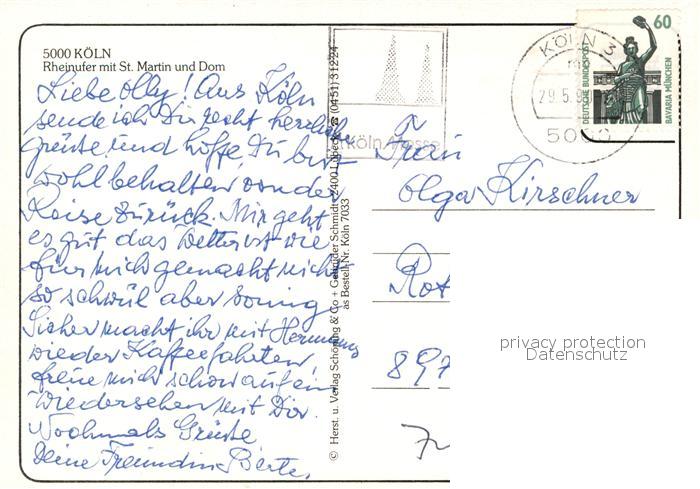 5000 KÖLN
Rheinufer mit St. Martin und Dom
Liebe Olly! Aus Köln
sende ich Dir recht herzliche
Grüsse und hoffe, Du bist
wohlbehalten von der
Reise zurück. Mir geht
es gut das Wetter ist wie
für mich gemacht nicht
so schwül aber sonnig
Sicher macht ihr mit Hermann
wieder Kaffeefahrten,
freue mich schon auf ein
Wiedersehen mit Dir.
Nochmals Grüsse
Deine Freundin Berte.
© Herst. u. Verlag Schöning & Co + Gebrüder Schmidt 2400 Lübeck ☎ (0451) 31224
as Bestell-Nr. Köln 7033
Köln Messe
KÖLN 3
29.5.
5000
60
DEUTSCHE BUNDESPOST
BAVARIA MÜNCHEN
Frau
Olga Kirschner
Rot
897
privacy protection
Datenschutz